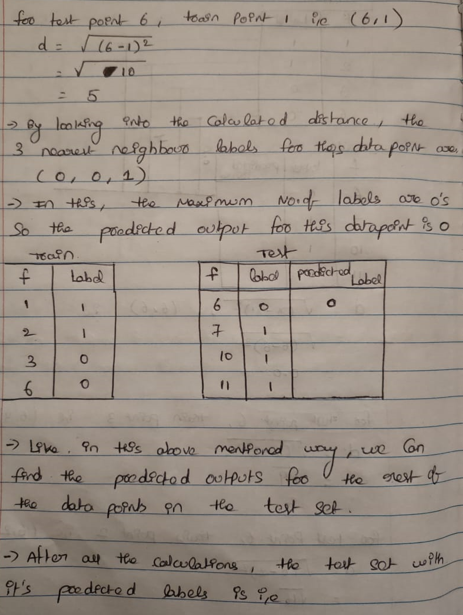 for test point 6, train point 1 i,e (6,1)
d = √(6-1)²
= √ 10
= 5
→ By looking into the calculated distance, the
3 nearest neighbour labels for this datapoint are
(0, 0, 1)
→ In this, the Maximum No.of labels are 0's
So the predicted output for this datapoint is 0
Train
f Label
1 1
2 1
3 0
6 0
Test
f label predicted Label
6 0 0
7 1
10 1
11 1
→ Like in this above mentioned way, we can
find the predicted outputs for the rest of
the data points in the test set.
→ After all the calculations, the test set with
it's predicted labels is i,e